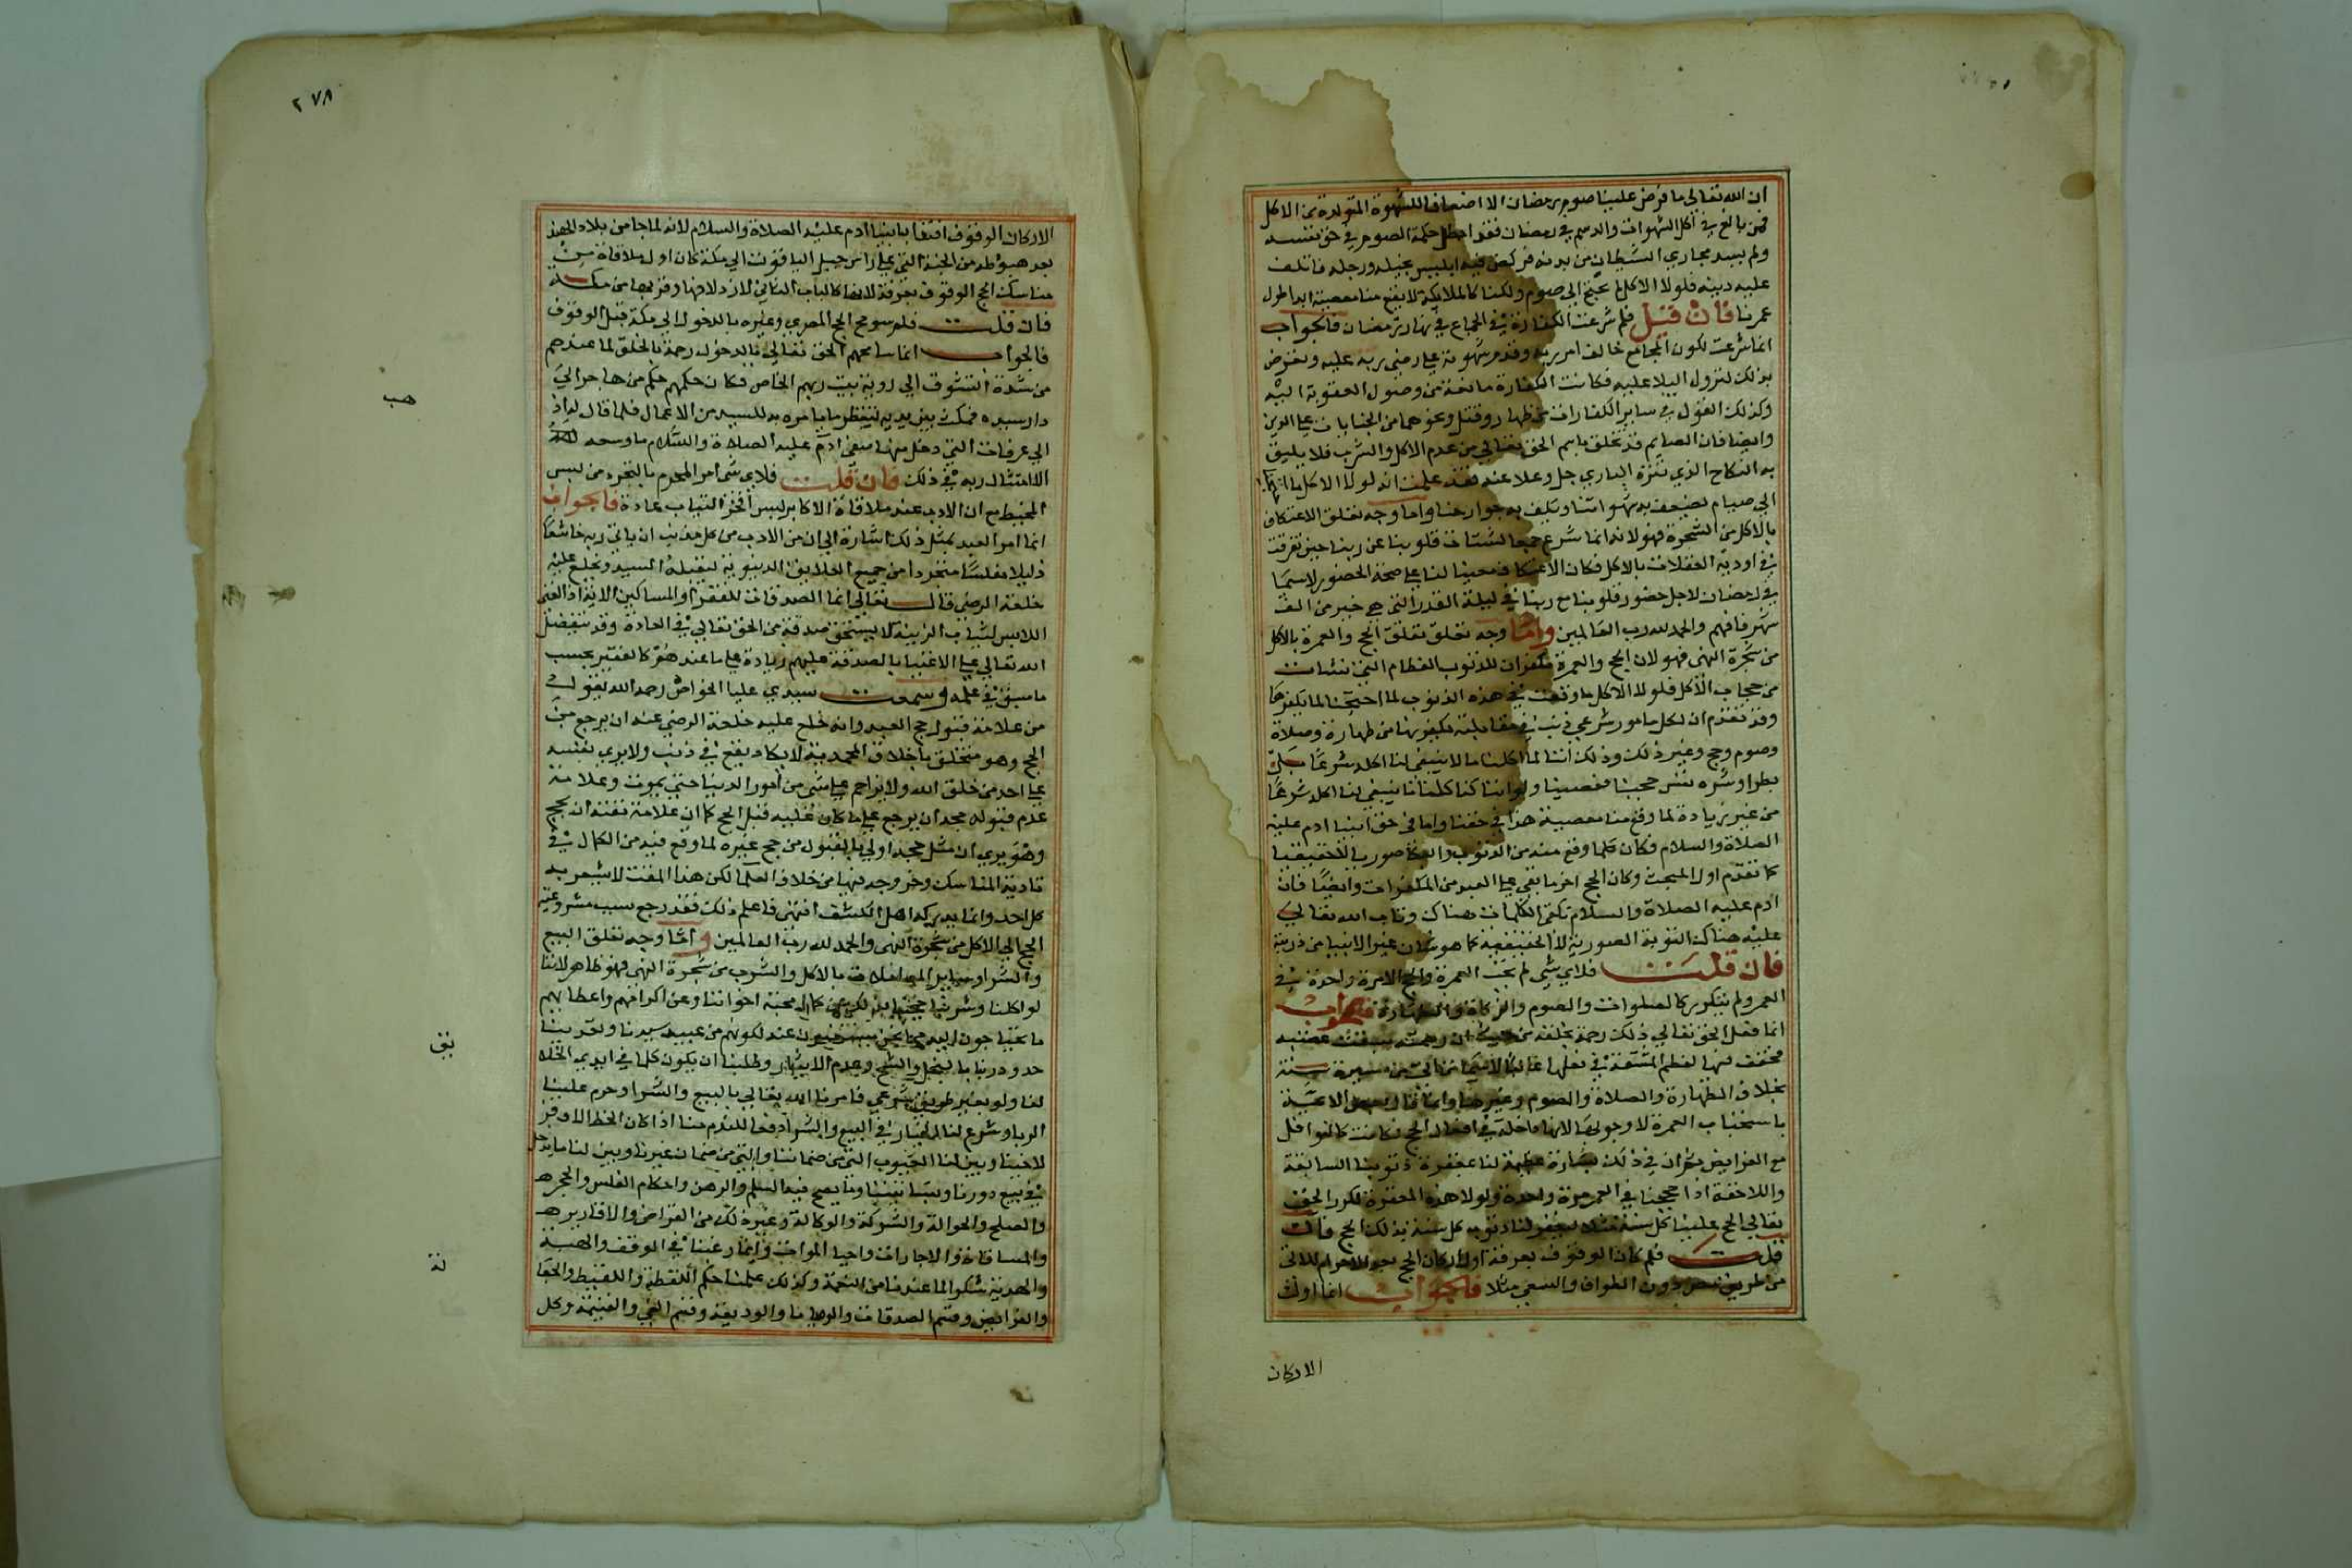 ان الله تعالي ما فرض علينا صوم رمضان الا اضعافا للشهوة المتولدة من الاكل
فمن بالغ في اكل الشهوات والدسم في رمضان فقد ابطل حكمة الصوم في حق نفسه
ولم يسد مجاري الشيطان من بدنه فركض فيه ابليس بخيله ورجله فاتلف
عليه دينه فلولا الاكل لم نحتج الي صوم ولكنا كالملايكة لا يقع منا معصية ابدا طول
عمرنا فان قيل فلم شرعت الكفارة في الجماع في نهار رمضان فالجواب
انما شرعت لكون المجامع خالف امر ربه وقدم شهوته علي رضي ربه عليه وتعرض
بذلك لنزول البلا عليه فكانت الكفارة مانعة من وصول العقوبة اليه
وكذلك القول في ساير الكفارات من ظهار وقتل ونحوهما من الجنايات علي الدين
وايضا فان الصايم قد تخلق باسم الحق تعالي من عدم الاكل والشرب فلا يليق
به النكاح الذي تنزه الباري جل وعلا عنه فقد علمت انه لولا الاكل ما احتجنا
الي صيام تضعف به شهواتنا وتكف به جوارحنا واما وجه تعلق الاعتكاف
بالاكل من الشجرة فهو لانه انما شرع جمعا لشتات قلوبنا عن ربنا حين تفرقت
في اودية الغفلات بالاكل فكان الاعتكاف معينا لنا علي صحة الحضور لاسيما
في رمضان لاجل حضور قلوبنا مع ربنا في ليلة القدر التي هي خير من الف
شهر فافهم والحمد لله رب العالمين واما وجه تعلق تعلق الحج والعمرة بالاكل
من شجرة النهي فهو لان الحج والعمرة مكفران للذنوب العظام التي نشات
من حجاب الاكل فلولا الاكل ما وقعت في هذه الذنوب لما احتجنا لما يكفرها
وقد تقدم ان لكل مامور شرعي ذنب في مقابلته يكفر بها من طهارة وصلاة
وصوم وحج وغير ذلك وذلك اننا لما اكلنا ما لا ينبغي لنا اكله شرعا بل
بطرا وشره نفس حجبنا فعصينا ولو اننا كنا اكلنا ما ينبغي لنا اكله شرعا
من غير زيادة لما وقع منا معصية هذا في حقنا واما في حق ابينا ادم عليه
الصلاة والسلام فكان كلما وقع منه من الذنوب والمعاصي صوريا لا حقيقيا
كما تقدم اول المبحث وكان الحج اخر ما بقي علي العبد من المكفرات وايضا فان
ادم عليه الصلاة والسلام تلقى الكلمات هناك وتاب الله تعالي
عليه هناك التوبة الصورية لا الحقيقية كما هو شان غير الانبيا من ذريته
فان قلت فلاي شي لم يجب العمرة والحج الا مرة واحدة في
العمر ولم يتكرر كالصلوات والصوم والزكاة والطهارة فالجواب
انما فعل الحق تعالي ذلك رحمة بخلقه من حيث ان رحمته سبقت غضبه
فخفف عنها لعظم المشقة في فعلها غالبا لاسيما من اتي من مسيرة سنة
بخلاف الطهارة والصلاة والصوم وغيرها وانما قال بعض الايمة
باستحباب العمرة لا وجوبها لانها داخلة في افعال الحج فكانت كالنوافل
مع الفرايض ثم ان في ذلك بشارة عظيمة لنا بمغفرة ذنوبنا السابقة
واللاحقة اذا حججنا في العمر مرة واحدة ولولا هذه المغفرة لكرر الحق
تعالي الحج علينا كل سنة مثلا ليغفر لنا ذنوب كل سنة بذلك الحج فان
قلت فلم كان الوقوف بعرفة اول اركان الحج بعد الاحرام للاتي
من طريق مصر دون الطواف والسعي مثلا فالجواب انما اولى
الاركان
٢٧٨
الاركان الوقوف اقتفا بابينا ادم عليه الصلاة والسلام لانه لما جا من بلاد الهند
بعد هبوطه من الجنة التي علي راس جبل الياقوت الي مكة كان اول ملاقاة من
مناسك الحج الوقوف بعرفة لانها كالباب الثاني لازدلافها وقربها من مكة
فان قلت فلم سومح الحج المصري وغيره بالدخول الي مكة قبل الوقوف
فالجواب انما سامحهم الحق تعالي بالدخول رحمة بالخلق لما عندهم
من شدة التشوق الي روية بيت ربهم الخاص فكان حكمهم حكم من هاجر الي
دار سيده فمكث بين يديه لينتظر ما يامره به السيد من الاعمال فلما قال له اذهب
الي عرفات التي دخل منها صفي ادم عليه الصلاة والسلام ما وسعه
الا امتثال ربه في ذلك فان قلت فلاي شي امر المحرم بالتجرد من لبس
المخيط مع ان الادب عند ملاقاة الاكابر لبس افخر الثياب عادة فالجواب
انما امر العبد بمثل ذلك اشارة الي ان من الادب من كل مذنب ان ياتي ربه خاشعا
ذليلا مفلسا متجردا من جميع العلايق الدنيوية ليقبله السيد ويخلع عليه
خلعة الرضي قال تعالي انما الصدقات للفقرا والمساكين الاية اذ الغني
اللابس لثياب الزينة لا يستحق صدقة من الحق تعالي في العادة وقد يتفضل
الله تعالي علي الاغنيا بالصدقة عليهم زيادة علي ما عندهم كالفقير بحسب
ما سبق في علمه وسمعت سيدي عليا الخواص رحمه الله يقول
من علامة قبول حج العبد وانه خلع عليه خلعة الرضي عنه ان يرجع من
الحج وهو متخلق باخلاق المحمدية لا يكاد يقع في ذنب ولا يري نفسه
علي احد من خلق الله ولا يزاحم علي شي من امور الدنيا حتي يموت وعلامة
عدم قبوله حجه ان يرجع علي ما كان عليه قبل الحج كما ان علامة مقته ان يحج
وهو يري ان مثل حجه اولي بالقبول من حج غيره لما وقع فيه من الكمال في
تادية المناسك وخروجه فيها من خلاف العلما لكن هذا المقت لا يشعر به
كل احد وانما يدركه اهل الكشف انتهي فاعلم ذلك فقد رجع سبب مشروعية
الحج الي الاكل من شجرة النهي والحمد لله رب العالمين واما وجه تعلق البيع
والشرا وساير المعاملات بالاكل والشرب من شجرة النهي فهو ظاهر لاننا
لو اكلنا وشربنا حجبنا بذلك عن كمال محبة اخواننا وعن اكرامهم واعطايهم
ما يحتاجون اليه مما نحن مستخلفون عنه لكونهم من عبيد سيدنا وتعدينا
حدود ربنا بالبخل والشح وعدم الايثار وطلبنا ان يكون كلما في ايدي الخلق
لنا ولو بغير طريق شرعي فامرنا الله تعالي بالبيع والشرا وحرم علينا
الربا وشرع لنا الخيار في البيع والشرا دفعا للندم منا اذا كان الحظ الاوفر
لاخينا وبين لنا العيوب التي من ضماننا والتي من ضمان غيرنا وبين لنا ما يدخل
في بيع دورنا وبساتيننا وما يصح فيه السلم والرهن واحكام الفلس والحجر
والصلح والحوالة والشركة والوكالة وغير ذلك من القراض والاقارير
والمساقاة والاجارات واحيا الموات وانما رغبنا في الوقف والهبة
والهدية شكرا لما عندنا من النعمة وكذلك علمنا حكم اللقطة واللقيط والجعالة
والفرايض وقسم الصدقات والوصايا والوديعة وقسم الفي والغنيمة وكل